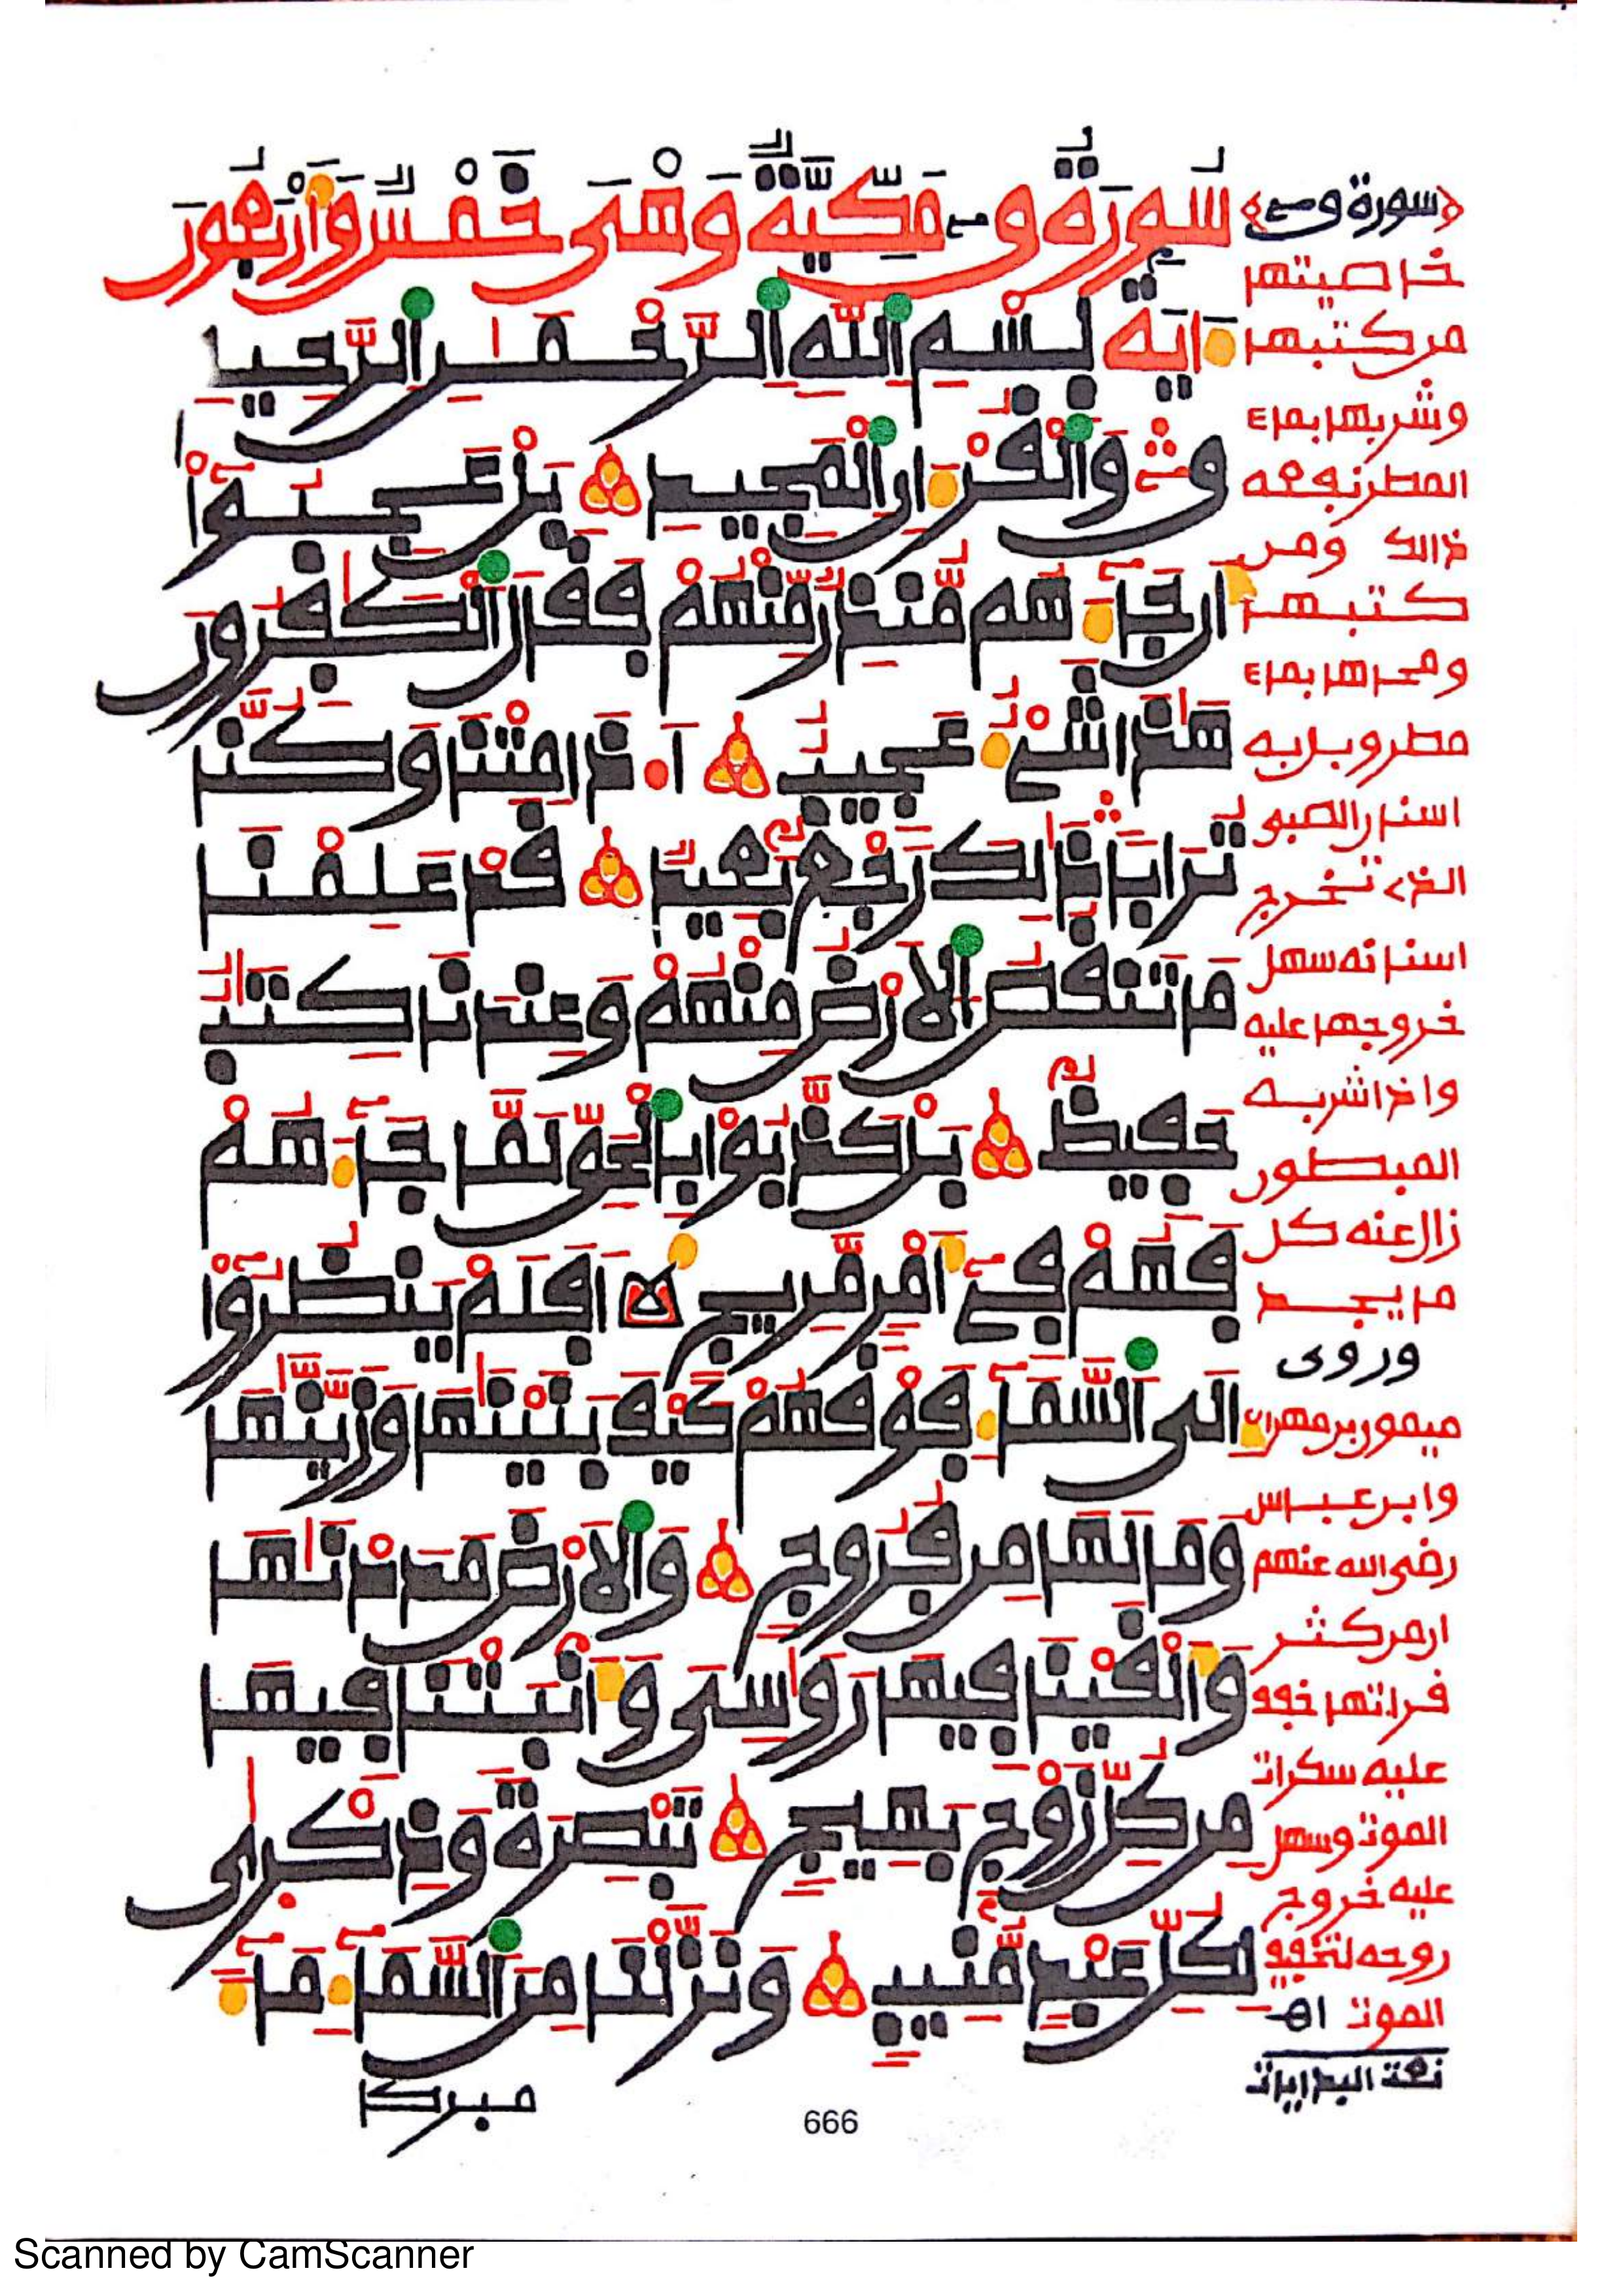 سُورَةُ قٓ مَكِّيَّةٌ وَهْيَ خَمْسٌ وَأَرْبَعُونَ
ءَايَةً بِسْمِ اللَّهِ الرَّحْمَٰنِ الرَّحِيمِ
قٓ وَالْقُرْءَانِ الْمَجِيدِ بَلْ عَجِبُوٓا
أَن جَآءَهُم مُّنذِرٌ مِّنْهُمْ فَقَالَ الْكَٰفِرُونَ
هَٰذَا شَيْءٌ عَجِيبٌ أَ.ذَا مِتْنَا وَكُنَّا
تُرَابًا ذَٰلِكَ رَجْعٌ بَعِيدٌ قَدْ عَلِمْنَا
مَا تَنقُصُ الْأَرْضُ مِنْهُمْ وَعِندَنَا كِتَٰبٌ
حَفِيظٌ بَلْ كَذَّبُوا بِالْحَقِّ لَمَّا جَآءَهُمْ
فَهُمْ فِيٓ أَمْرٍ مَّرِيجٍ أَفَلَمْ يَنظُرُوٓا
إِلَى السَّمَآءِ فَوْقَهُمْ كَيْفَ بَنَيْنَٰهَا وَزَيَّنَّٰهَا
وَمَا لَهَا مِن فُرُوجٍ وَالْأَرْضَ مَدَدْنَٰهَا
وَأَلْقَيْنَا فِيهَا رَوَٰسِيَ وَأَنبَتْنَا فِيهَا
مِن كُلِّ زَوْجٍ بَهِيجٍ تَبْصِرَةً وَذِكْرَىٰ
لِكُلِّ عَبْدٍ مُّنِيبٍ وَنَزَّلْنَا مِنَ السَّمَآءِ مَآءً
مبركا
﴿سورة ق﴾
خاصيتها
من كتبها
وشربها بماء
المطر نفعه
ذالك ومن
كتبها
ومحاها بماء
مطر وبل به
اسنان الصبي
الذي تخرج
اسنانه سهل
خروجها عليه
واذا شربه
المبطون
زال عنه كل
ما يجد
وروى
ميمون بن مهران
وابن عباس
رضي الله عنهم
ان من كثر
قراءتها خفف
عليه سكرات
الموت وسهل
عليه خروج
روحه لتخفيف
الموت اهـ
نعت البدايات
666
Scanned by CamScanner